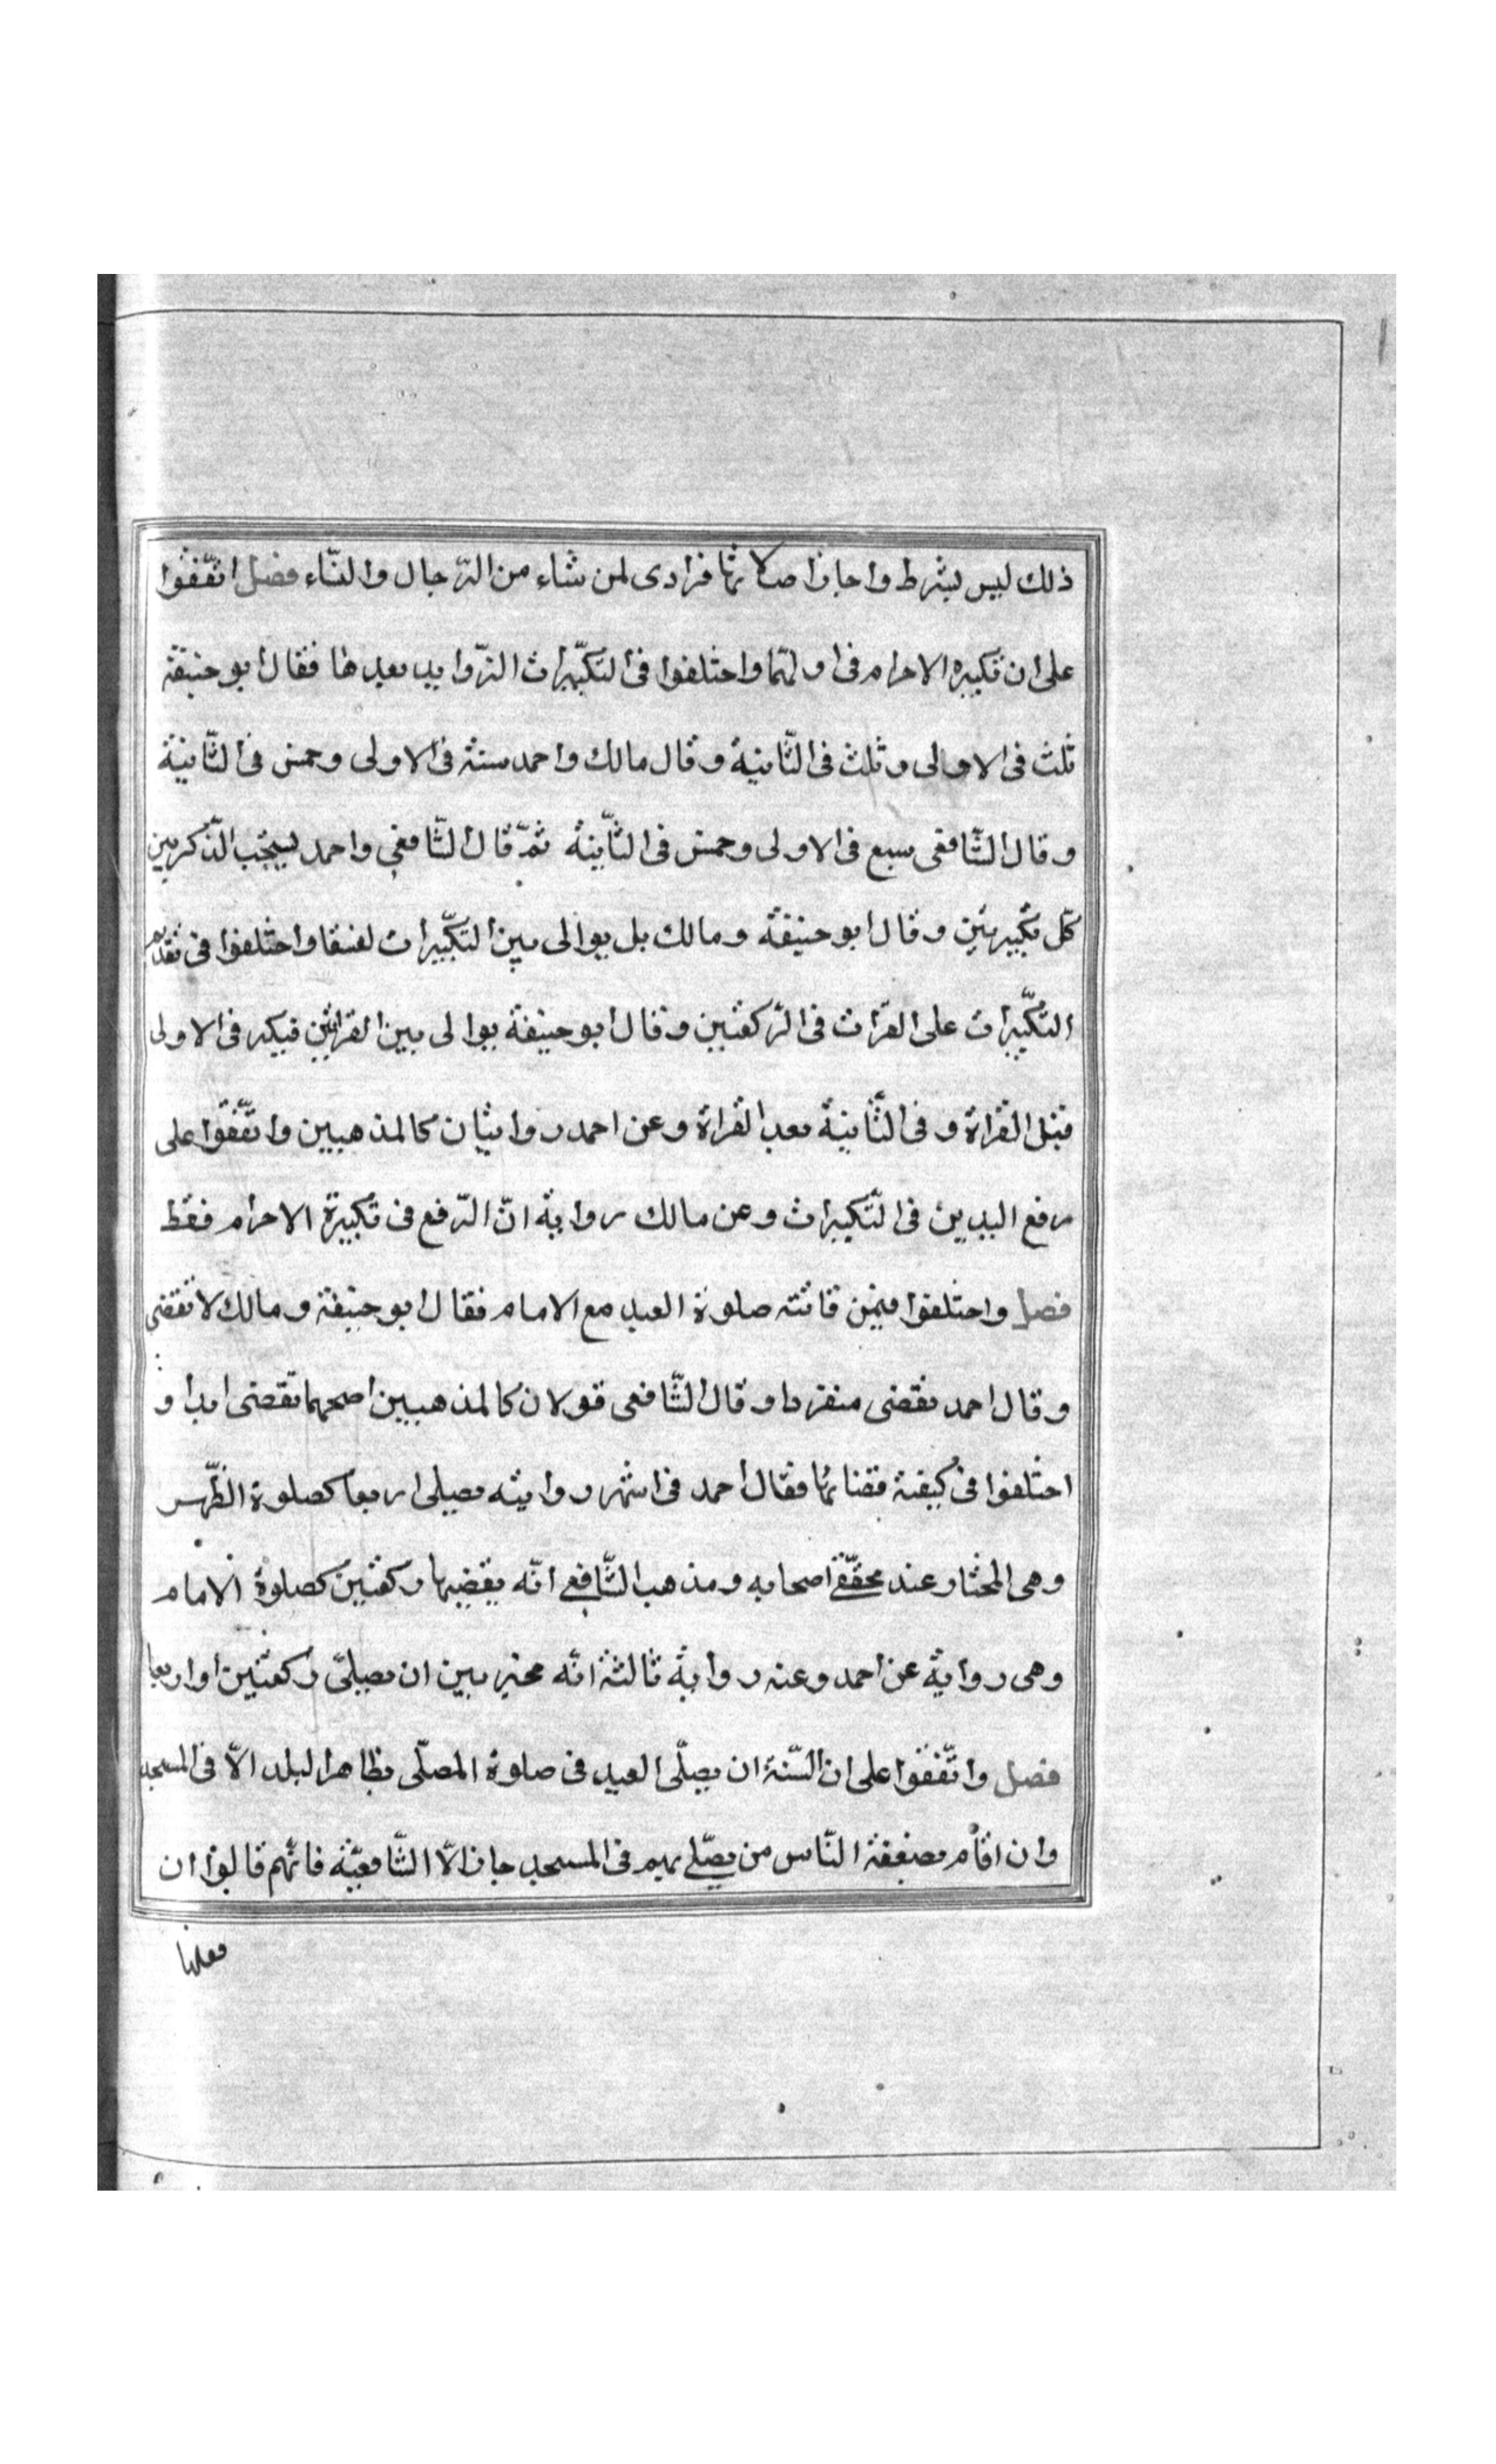 ذلك ليس بشرط واجازا صلاتها فرادى لمن شاء من الرّجال والنّساء فصل اتّفقوا
على ان تكبيره الاحرام فى اولهّا واختلفوا فى التكبّيرات الزّوايد بعدها فقال ابو حنيفة
ثلث فى الاولى وثلث فى الثّانية وقال مالك واحمد ستة فى الاولى وخمس فى الثّانية
وقال الشّافعى سبع فى الاولى وخمس فى الثّانية ثمّ قال الشّافعى واحمد يستحّب الذّكر بين
كلّ تكبيرتين وقال ابو حنيفة ومالك بل يوالى بين التكبّيرات لفنقا واختلفوا فى تقديم
التكّبيرات على القرات فى الرّكعتين وقال ابو حنيفة يوالى بين القرائتين فيكبر فى الاولى
قبل القراة وفى الثّانية بعد القراة وعن احمد روايتان كالمذهبين واتّفقوا على
رفع اليدين فى التّكبيرات وعن مالك رواية انّ الرّفع فى تكبيرة الاحرام فقط
فصل واختلفوا فيمن فاتته صلوة العيد مع الامام فقال ابو حنيفة ومالك لا تقضى
وقال احمد تقضى منفردا وقال الشّافعى قولان كالمذهبين اصحهما تقضى ابدا و
اختلفوا فى كيفية قضائها فقال احمد فى اشهر روايته يصلى اربعا كصلوة الظّهر
وهى المختار عند محقّقى اصحابه ومذهب الشّافعى انّه يقضيها ركعتين كصلوة الامام
وهى رواية عن احمد وعنه رواية ثالثة انّه مخير بين ان يصلىّ ركعتين او اربعا
فصل واتّفقوا على ان السّنة ان يصلّى العيد فى صلوة المصلّى بظاهر البلد الاّ فى المسجد
وان اقام بضعفة النّاس من يصلّى بهم فى المسجد جاز الاّ الشّافعيّة فانّهم قالوا ان
فعلها